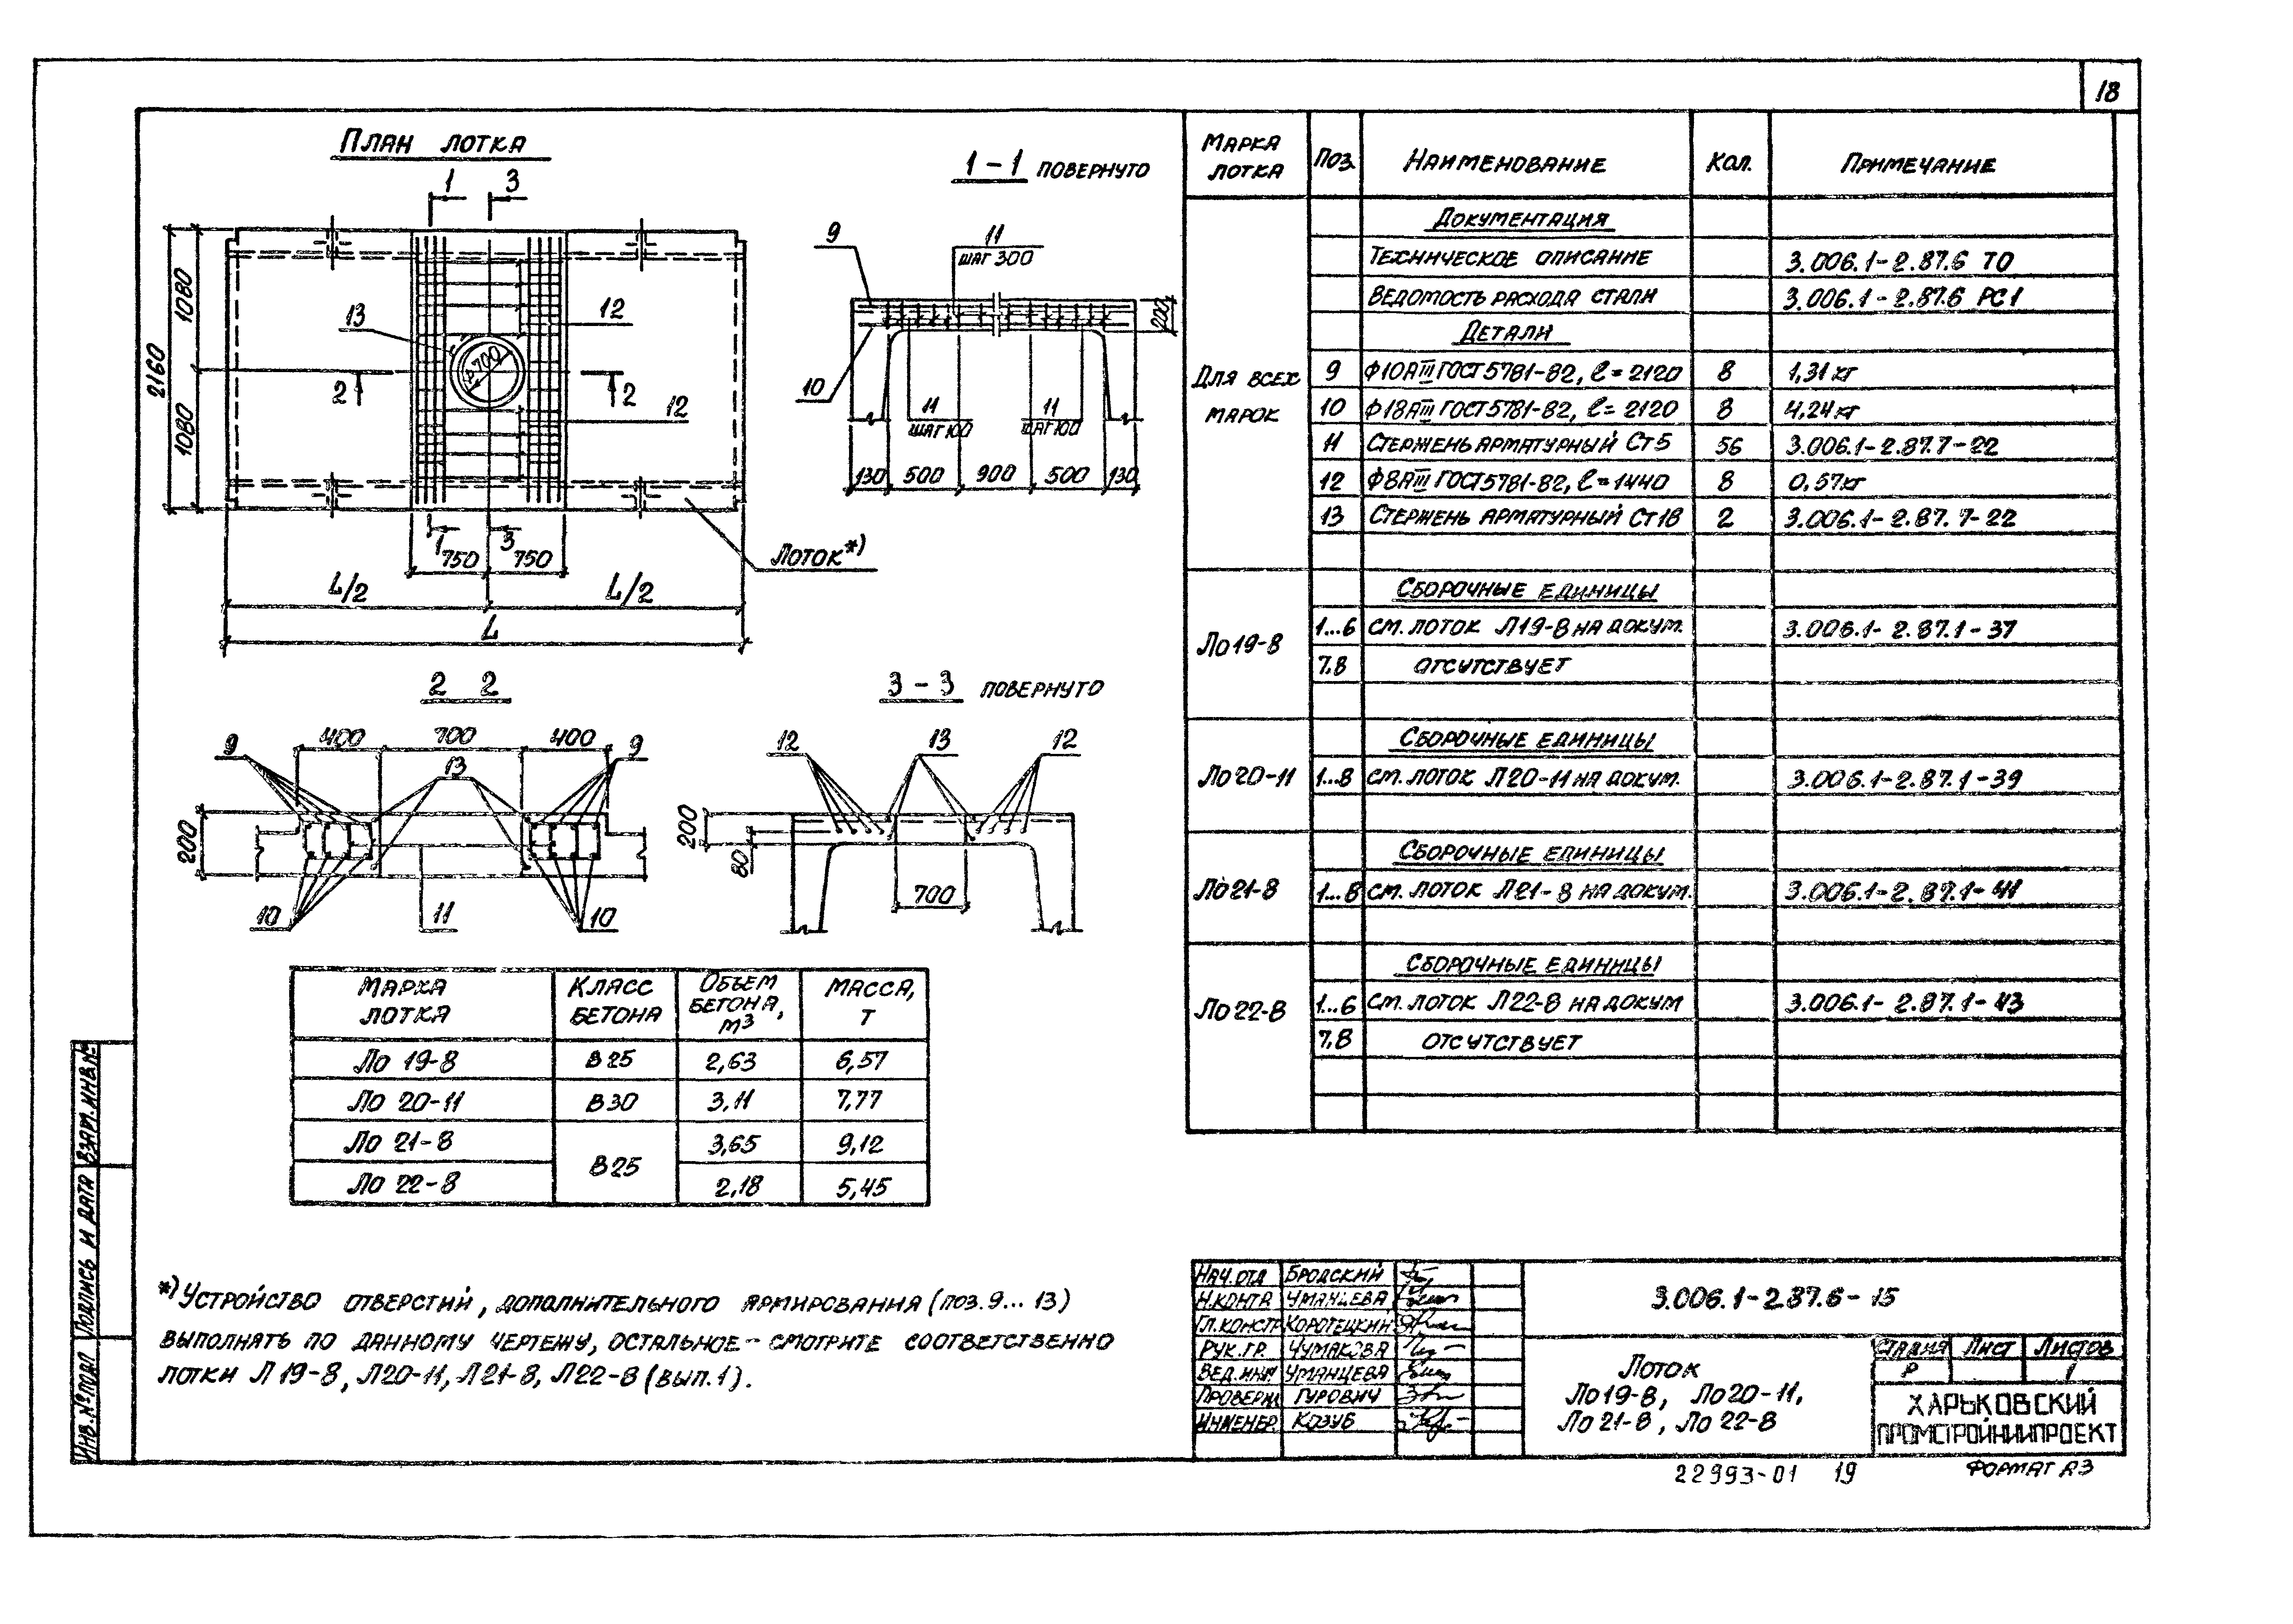 18
План лотка
1 3
2160
1080
1080
13
12
⌀700
2 2
12
1 3
750 750
Лоток*)
L/2 L/2
L
1-1 повернуто
9
11
шаг 300
200
10
11
шаг 100
11
шаг 100
130 500 900 500 130
2 2
9
400 700 400
9
13
200
10
11
10
3-3 повернуто
12 13 12
200
80
700
Марка лотка | Класс бетона | Объем бетона, м3 | Масса, т
Ло 19-8 | В25 | 2,63 | 6,57
Ло 20-11 | В30 | 3,11 | 7,77
Ло 21-8 | В25 | 3,65 | 9,12
Ло 22-8 | 2,18 | 5,45
*) Устройство отверстий, дополнительного армирования (поз. 9... 13)
выполнять по данному чертежу, остальное - смотрите соответственно
лотки Л 19-8, Л20-11, Л21-8, Л22-8 (вып. 1).
Марка лотка | Поз. | Наименование | Кол. | Примечание
Документация
Техническое описание | 3.006.1-2.87.6 ТО
Ведомость расхода стали | 3.006.1-2.87.6 РС1
Детали
Для всех марок
9 | Ф10АIII ГОСТ 5781-82, ℓ=2120 | 8 | 1,31 кг
10 | Ф18АIII ГОСТ 5781-82, ℓ=2120 | 8 | 4,24 кг
11 | Стержень арматурный Ст5 | 56 | 3.006.1-2.87.7-22
12 | Ф8АIII ГОСТ 5781-82, ℓ=1440 | 8 | 0,57 кг
13 | Стержень арматурный Ст18 | 2 | 3.006.1-2.87.7-22
Сборочные единицы
Ло19-8 | 1...6 | см. лоток Л19-8 на докум. | 3.006.1-2.87.1-37
7,8 | отсутствует
Сборочные единицы
Ло20-11 | 1...8 | см. лоток Л20-11 на докум. | 3.006.1-2.87.1-39
Сборочные единицы
Ло21-8 | 1...8 | см. лоток Л21-8 на докум. | 3.006.1-2.87.1-41
Сборочные единицы
Ло22-8 | 1...6 | см. лоток Л22-8 на докум | 3.006.1-2.87.1-43
7,8 | отсутствует
Нач. отд Бродский
Н.контр Уманцева
Гл.констр Коротецкий
Рук. гр. Чумакова
Вед. инж Уманцева
Проверил Гурович
Инженер Козуб
3.006.1-2.87.6-15
Лоток
Ло19-8, Ло20-11,
Ло 21-8, Ло 22-8
Стадия Лист Листов
Р 1
Харьковский
Промстройниипроект
22993-01 19
Формат А3
Взам. инв. №
Подпись и дата
Инв. № подл